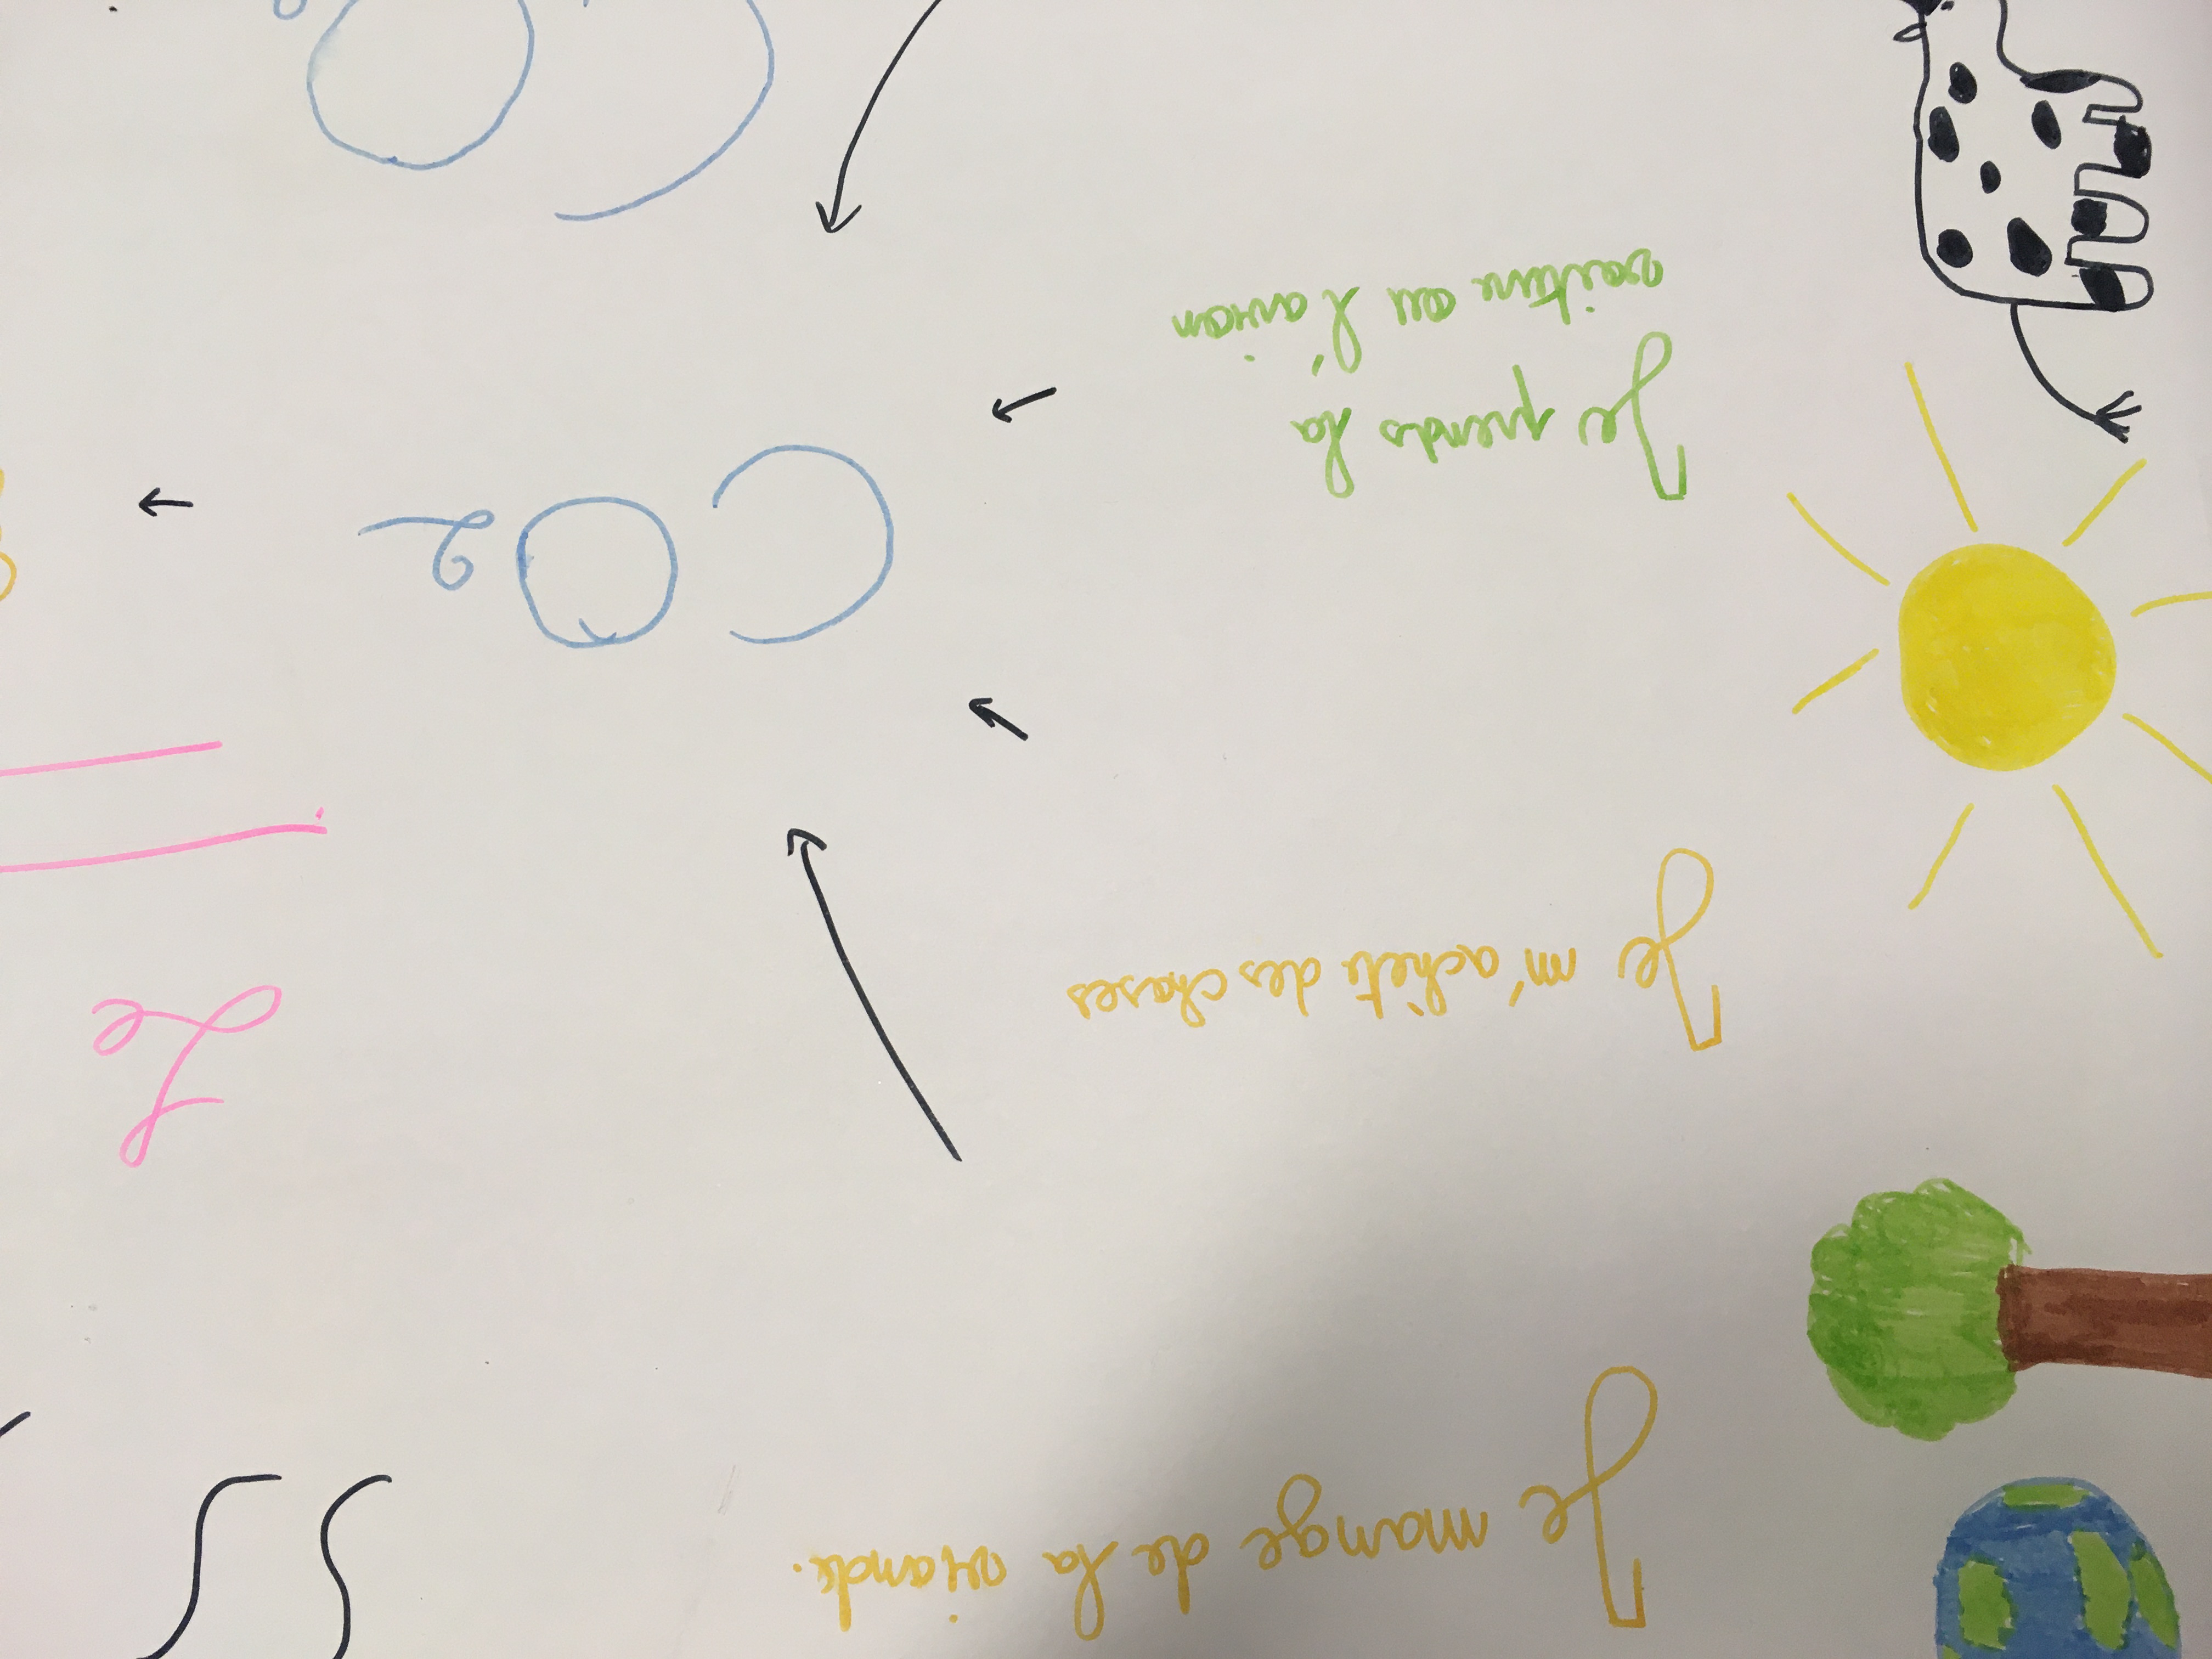 Je mange de la viande.
Je m'achète des choses
Je prends la
voiture ou l'avion
CO2